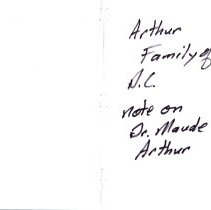 Arthur
Family of
D.C.
note on
Dr. Maude
Arthur